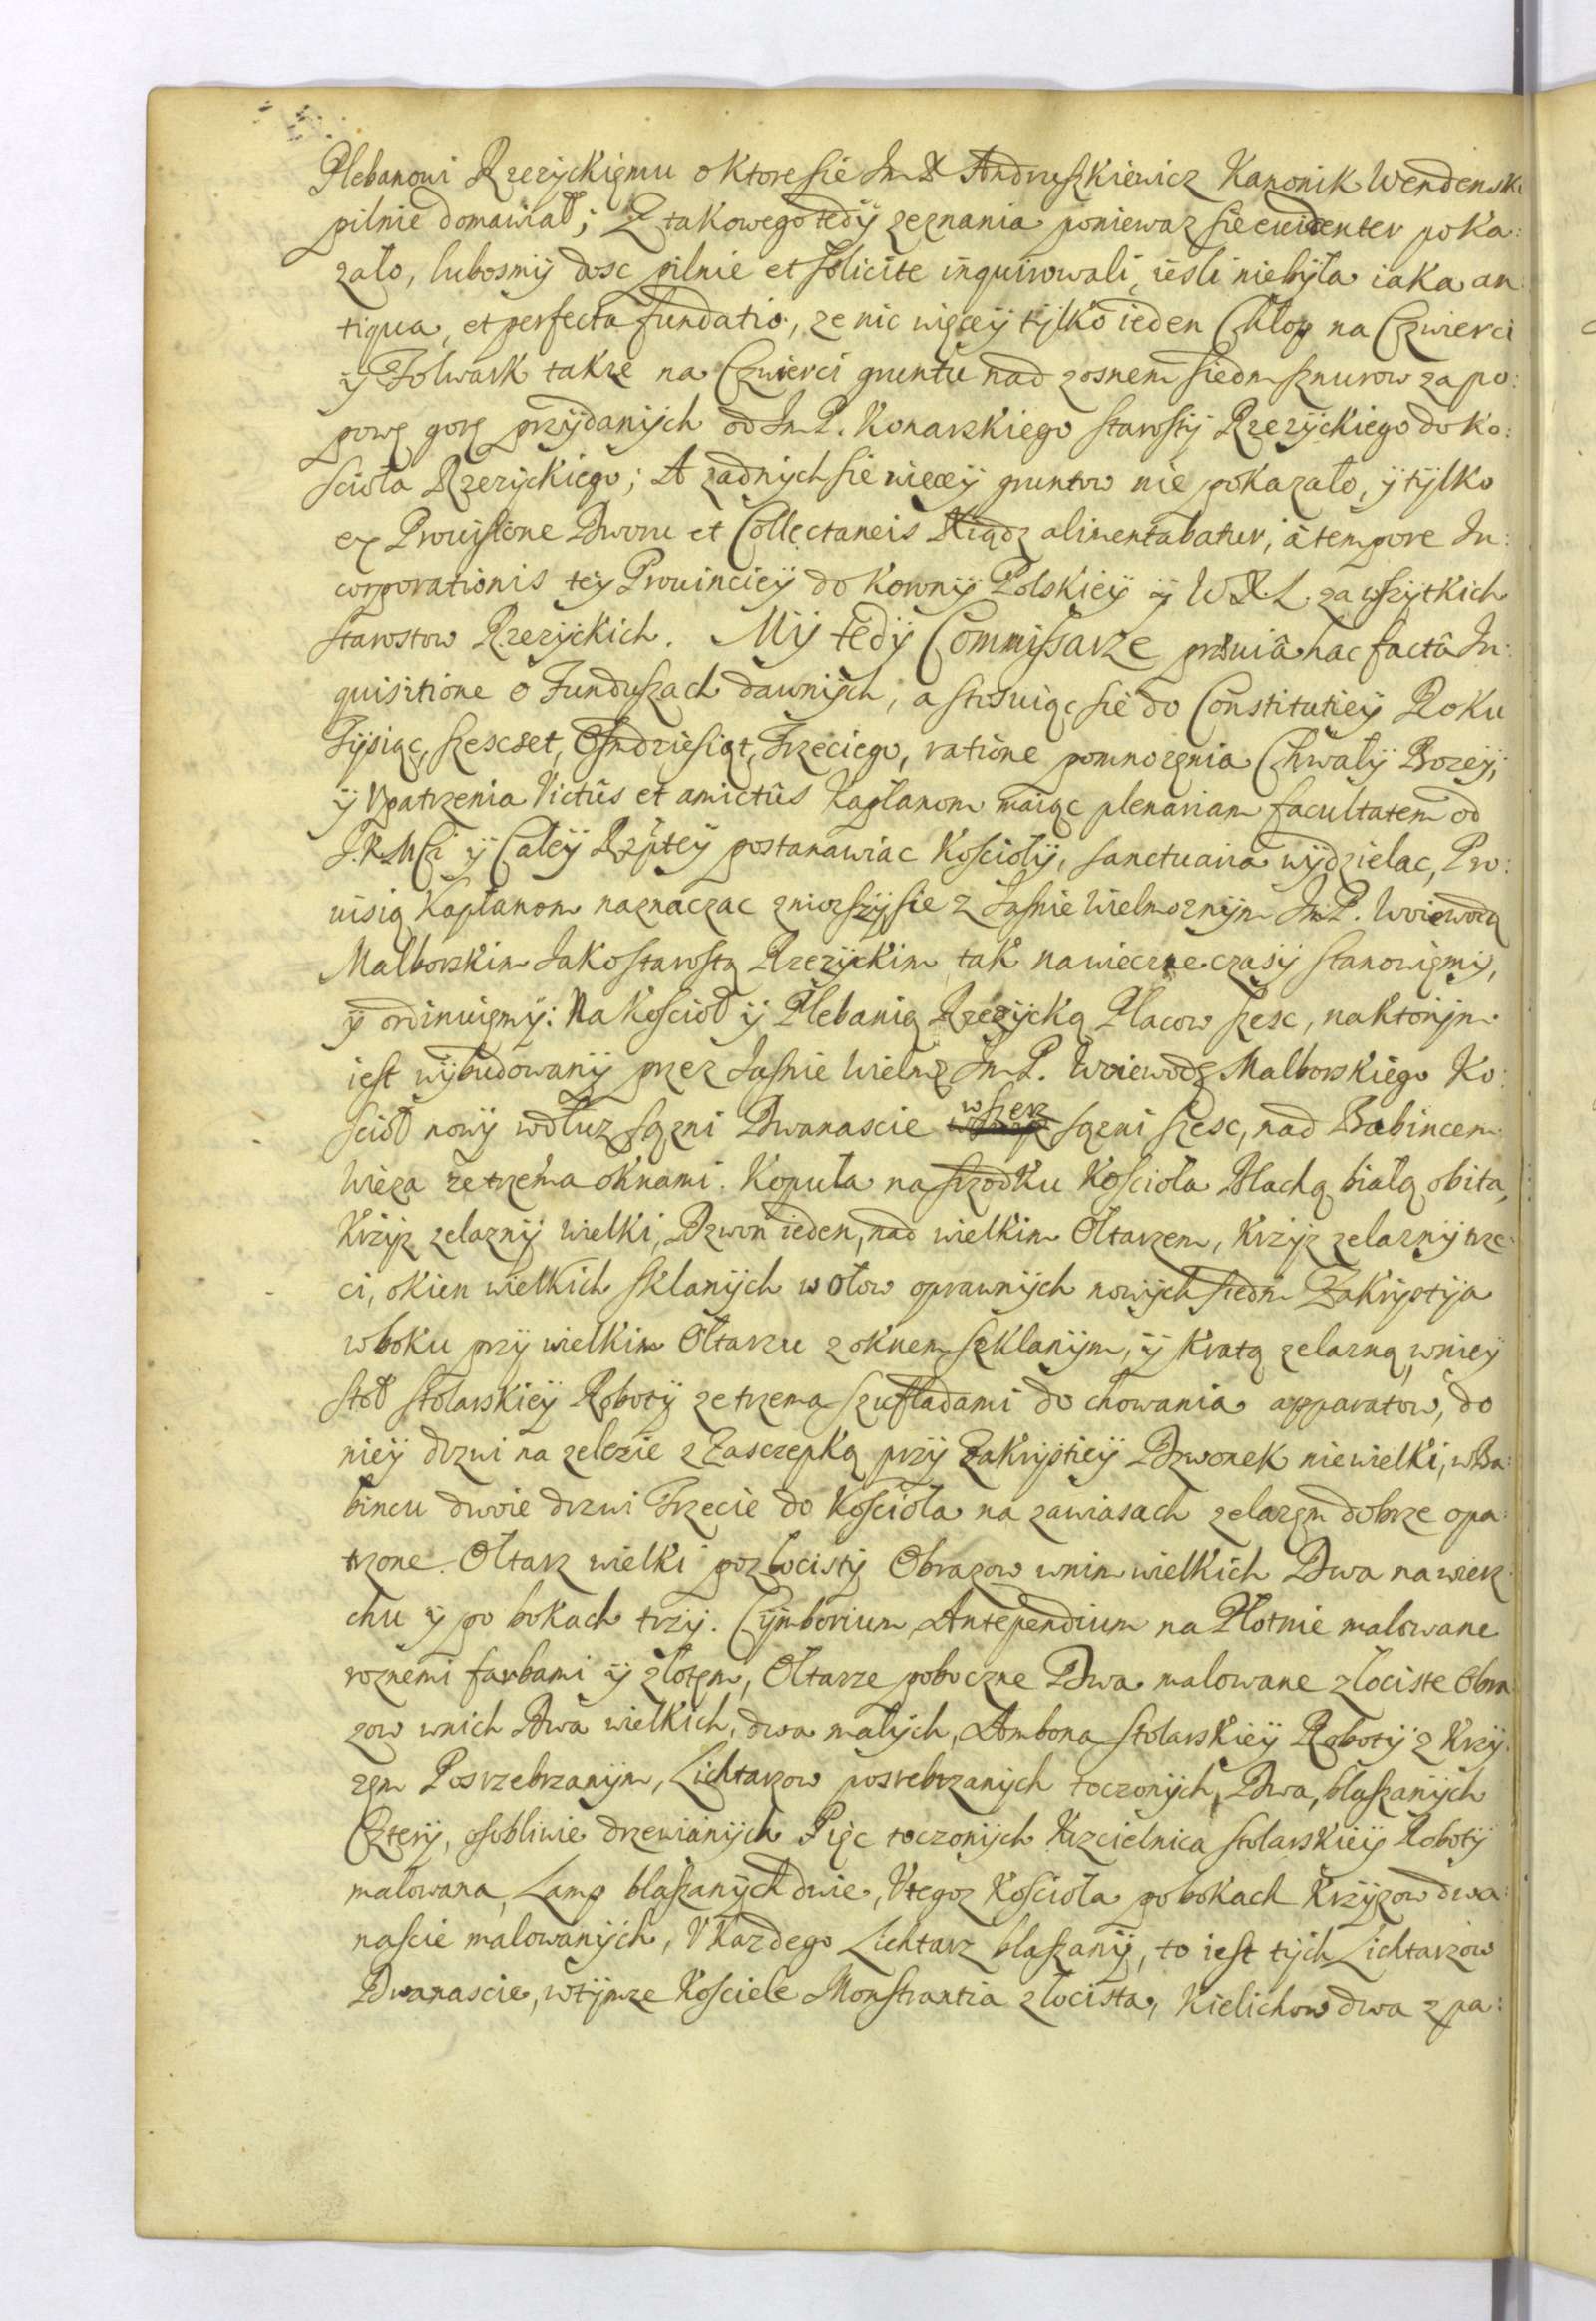 Plebanowi Rzeżyckięmu o ktore sie Jm X Andruszkiewicz Kanonik Wendenski
pilnie domawiał; Z takowego tedÿ zeznania poniewaz sie euidenter poka:
zało, lubosmÿ dosc pilnie et solicite inquirowali, iesli niebÿła iaka an:
tiqua, et perfecta fundatio, ze nic więceÿ tÿlko ieden Chłop na Czwierci
ÿ Folwark takze na Czwierci gruntu nad zosnem siedm sznurow za po:
powę gorę przÿdanÿch od Jm P. Konarzkiego starostÿ Rzezÿckiego do Ko:
scioła Rzezÿckiego; A zadnÿch sie wieceÿ gruntow nie pokazało, ÿ tÿlko
ex Prouisione Dworu et Collectaneis Xiądz alimentabatur, à tempore In:
corporationis teÿ Prouincieÿ do Koronÿ Polskieÿ ÿ W.X.L. za wszÿtkich
Starostow Rzezÿckich. Mÿ tedÿ Commissarze præuiâ hac factâ In:
quisitione o Funduszach dawnÿch, a stosuiąc sie do Constitutieÿ Roku
Tÿsiąc, szescset, Osmdziesiąt, Trzeciego, ratione pomnozęnia Chwałÿ Bozeÿ,
ÿ Vpatrzenia Victûs et amictûs Kapłanom maiąc plenariam facultatem od
J.K.Mści ÿ Całeÿ Rzpteÿ postanawiac Kosciołÿ, sanctuaria wÿdzielac, Pro:
uisią Kapłanom naznaczac zniozszÿ sie z Jasnie Wielmoznÿm Jm P. Woiewodą
Malborskim Jako starostą Rzezÿckim tak na wieczne czasÿ stanowięmÿ,
ÿ ordinuięmÿ: Na Kościoł ÿ Plebanią Rzezÿcką Placow szesc, na ktorÿm
iest wÿbudowanÿ przez Jasnie Wielmż Jm P. Woiewodę Malborskiego Ko:
scioł nowÿ wdłuz sązni Dwanascie wszerz sązni szesc, nad Babincem
Wieza ze trzema oknami. Kopuła na srzodku Kościoła Blachą białą obita,
Krzÿz zelaznÿ wielki, Dzwon ieden, nad wielkim Ołtarzem, Krzÿz zelaznÿ trze:
ci, okien wielkich sklanÿch w ołow oprawnÿch nowÿch siedm Zakrÿstÿa
w boku przÿ wielkim Ołtarzu z oknem szklanÿm, ÿ Kratą zelazną, w nieÿ
stoł stolarskieÿ Robotÿ ze trzema szufladami do chowania apparatow, do
nieÿ drzwi na zelezie z Zasczepką przÿ Zakrÿstieÿ Dzwonek niewielki, w Ba:
bincu dwoie drzwi Trzecie do Kościoła na zawiasach zelazęm dobrze opa:
trzone. Ołtarz wielki pozłocistÿ Obrazow w nim wielkich Dwa na wierz:
chu ÿ po bokach trzÿ. Cÿmborium, Antependium na Płotnie malowane
roznemi farbami ÿ złotęm, Ołtarze poboczne Dwa malowane złociste Obra:
zow w nich Dwa wielkich, dwa małÿch, Ambona stolarskieÿ Robotÿ z Krzÿ:
zęm Posrzebrzanÿm, Lichtarzow posrebrzanÿch toczonÿch, Dwa, blaszanÿch
Czterÿ, osobliwie drzewianÿch Pięc toczonÿch Krzcielnica stolarskieÿ Robotÿ
malowana, Lamp blaszanÿch dwie, V tegoz Kościoła po bokach Krzÿzow dwa:
nascie malowanÿch, V Kazdego Lichtarz blaszanÿ, to iest tÿch Lichtarzow
Dwanascie, w tÿmze Kościele Monstrantia złocista, Kielichow dwa z pa: